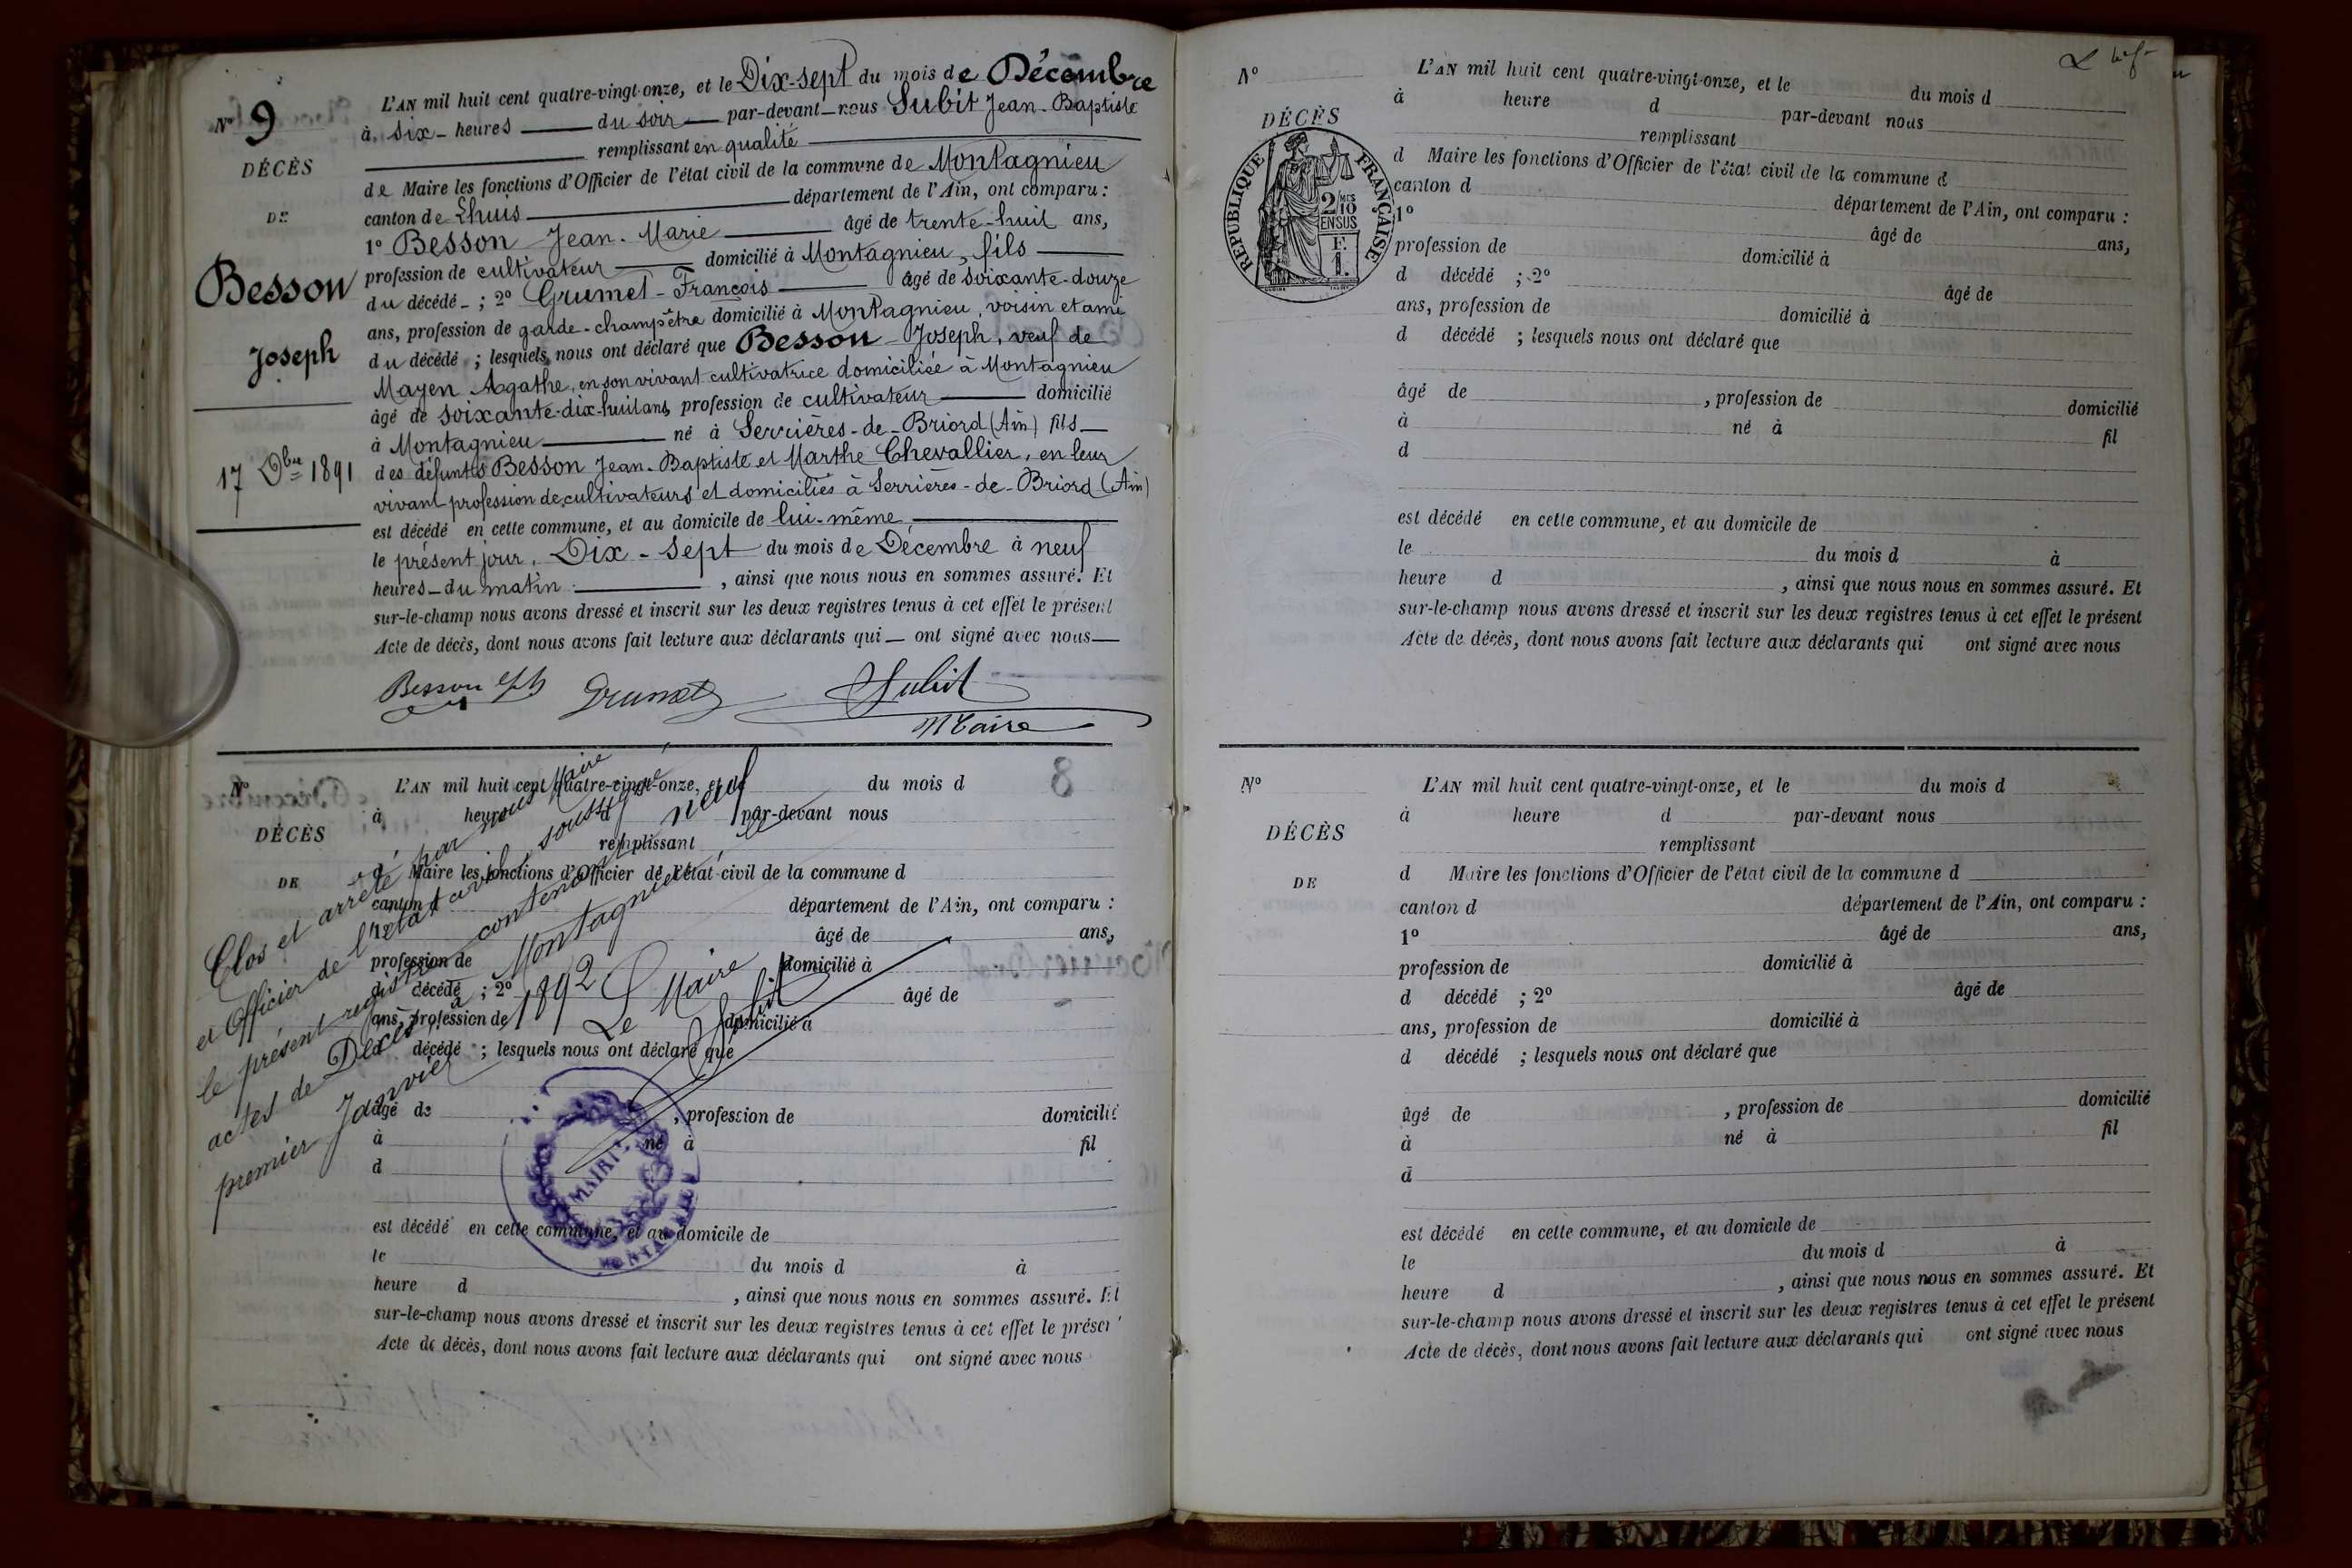 N° 9
DÉCÈS
DE
Besson
Joseph
17 Xbre 1891
L'AN mil huit cent quatre-vingt-onze, et le Dix-sept du mois de Décembre
à six - heures du soir par-devant - nous Subit Jean-Baptiste
remplissant en qualité
de Maire les fonctions d'Officier de l'état civil de la commune de Montagnieu
canton de Lhuis département de l'Ain, ont comparu :
1° Besson Jean-Marie âgé de trente-huit ans,
profession de cultivateur domicilié à Montagnieu, fils
du décédé - ; 2° Grumet - François âgé de soixante-douze
ans, profession de garde-champêtre domicilié à Montagnieu, voisin et ami
du décédé ; lesquels nous ont déclaré que Besson Joseph, veuf de
Mayen Agathe, en son vivant cultivatrice domiciliée à Montagnieu
âgé de soixante-dix-huit ans, profession de cultivateur domicilié
à Montagnieu né à Serrières-de-Briord (Ain) fils
des défunts Besson Jean-Baptiste et Marthe Chevallier, en leur
vivant profession de cultivateurs et domiciliés à Serrières-de-Briord (Ain)
est décédé en cette commune, et au domicile de lui-même,
le présent jour, Dix-sept du mois de Décembre à neuf
heures - du matin , ainsi que nous nous en sommes assuré. Et
sur-le-champ nous avons dressé et inscrit sur les deux registres tenus à cet effet le présent
Acte de décès, dont nous avons fait lecture aux déclarants qui - ont signé avec nous
Besson Grumet Subit
Maire
N°
DÉCÈS
DE
L'AN mil huit cent quatre-vingt-onze, et le du mois d
à heure d par-devant nous
remplissant
d Maire les fonctions d'Officier de l'état civil de la commune d
canton d département de l'Ain, ont comparu :
1° âgé de ans,
profession de domicilié à
d décédé ; 2° âgé de
ans, profession de domicilié à
d décédé ; lesquels nous ont déclaré que
âgé de , profession de domicilié
à né à fil
d
est décédé en cette commune, et au domicile de
le du mois d à
heure d , ainsi que nous nous en sommes assuré. Et
sur-le-champ nous avons dressé et inscrit sur les deux registres tenus à cet effet le présent
Acte de décès, dont nous avons fait lecture aux déclarants qui ont signé avec nous
Clos et arrêté par nous Maire
et Officier de l'état civil soussigné
le présent registre contenant neuf
actes de Décès à Montagnieu, le
premier Janvier 1892
Le Maire
Subit
MAIRIE
MONTAGNIEU
N°
DÉCÈS
RÉPUBLIQUE FRANÇAISE
2/10
EN SUS
F.
1.
L'AN mil huit cent quatre-vingt-onze, et le du mois d
à heure d par-devant nous
remplissant
d Maire les fonctions d'Officier de l'état civil de la commune d
canton d département de l'Ain, ont comparu :
1° âgé de ans,
profession de domicilié à
d décédé ; 2° âgé de
ans, profession de domicilié à
d décédé ; lesquels nous ont déclaré que
âgé de , profession de domicilié
à né à fil
d
est décédé en cette commune, et au domicile de
le du mois d à
heure d , ainsi que nous nous en sommes assuré. Et
sur-le-champ nous avons dressé et inscrit sur les deux registres tenus à cet effet le présent
Acte de décès, dont nous avons fait lecture aux déclarants qui ont signé avec nous
N°
DÉCÈS
DE
L'AN mil huit cent quatre-vingt-onze, et le du mois d
à heure d par-devant nous
remplissant
d Maire les fonctions d'Officier de l'état civil de la commune d
canton d département de l'Ain, ont comparu :
1° âgé de ans,
profession de domicilié à
d décédé ; 2° âgé de
ans, profession de domicilié à
d décédé ; lesquels nous ont déclaré que
âgé de , profession de domicilié
à né à fil
d
est décédé en cette commune, et au domicile de
le du mois d à
heure d , ainsi que nous nous en sommes assuré. Et
sur-le-champ nous avons dressé et inscrit sur les deux registres tenus à cet effet le présent
Acte de décès, dont nous avons fait lecture aux déclarants qui ont signé avec nous